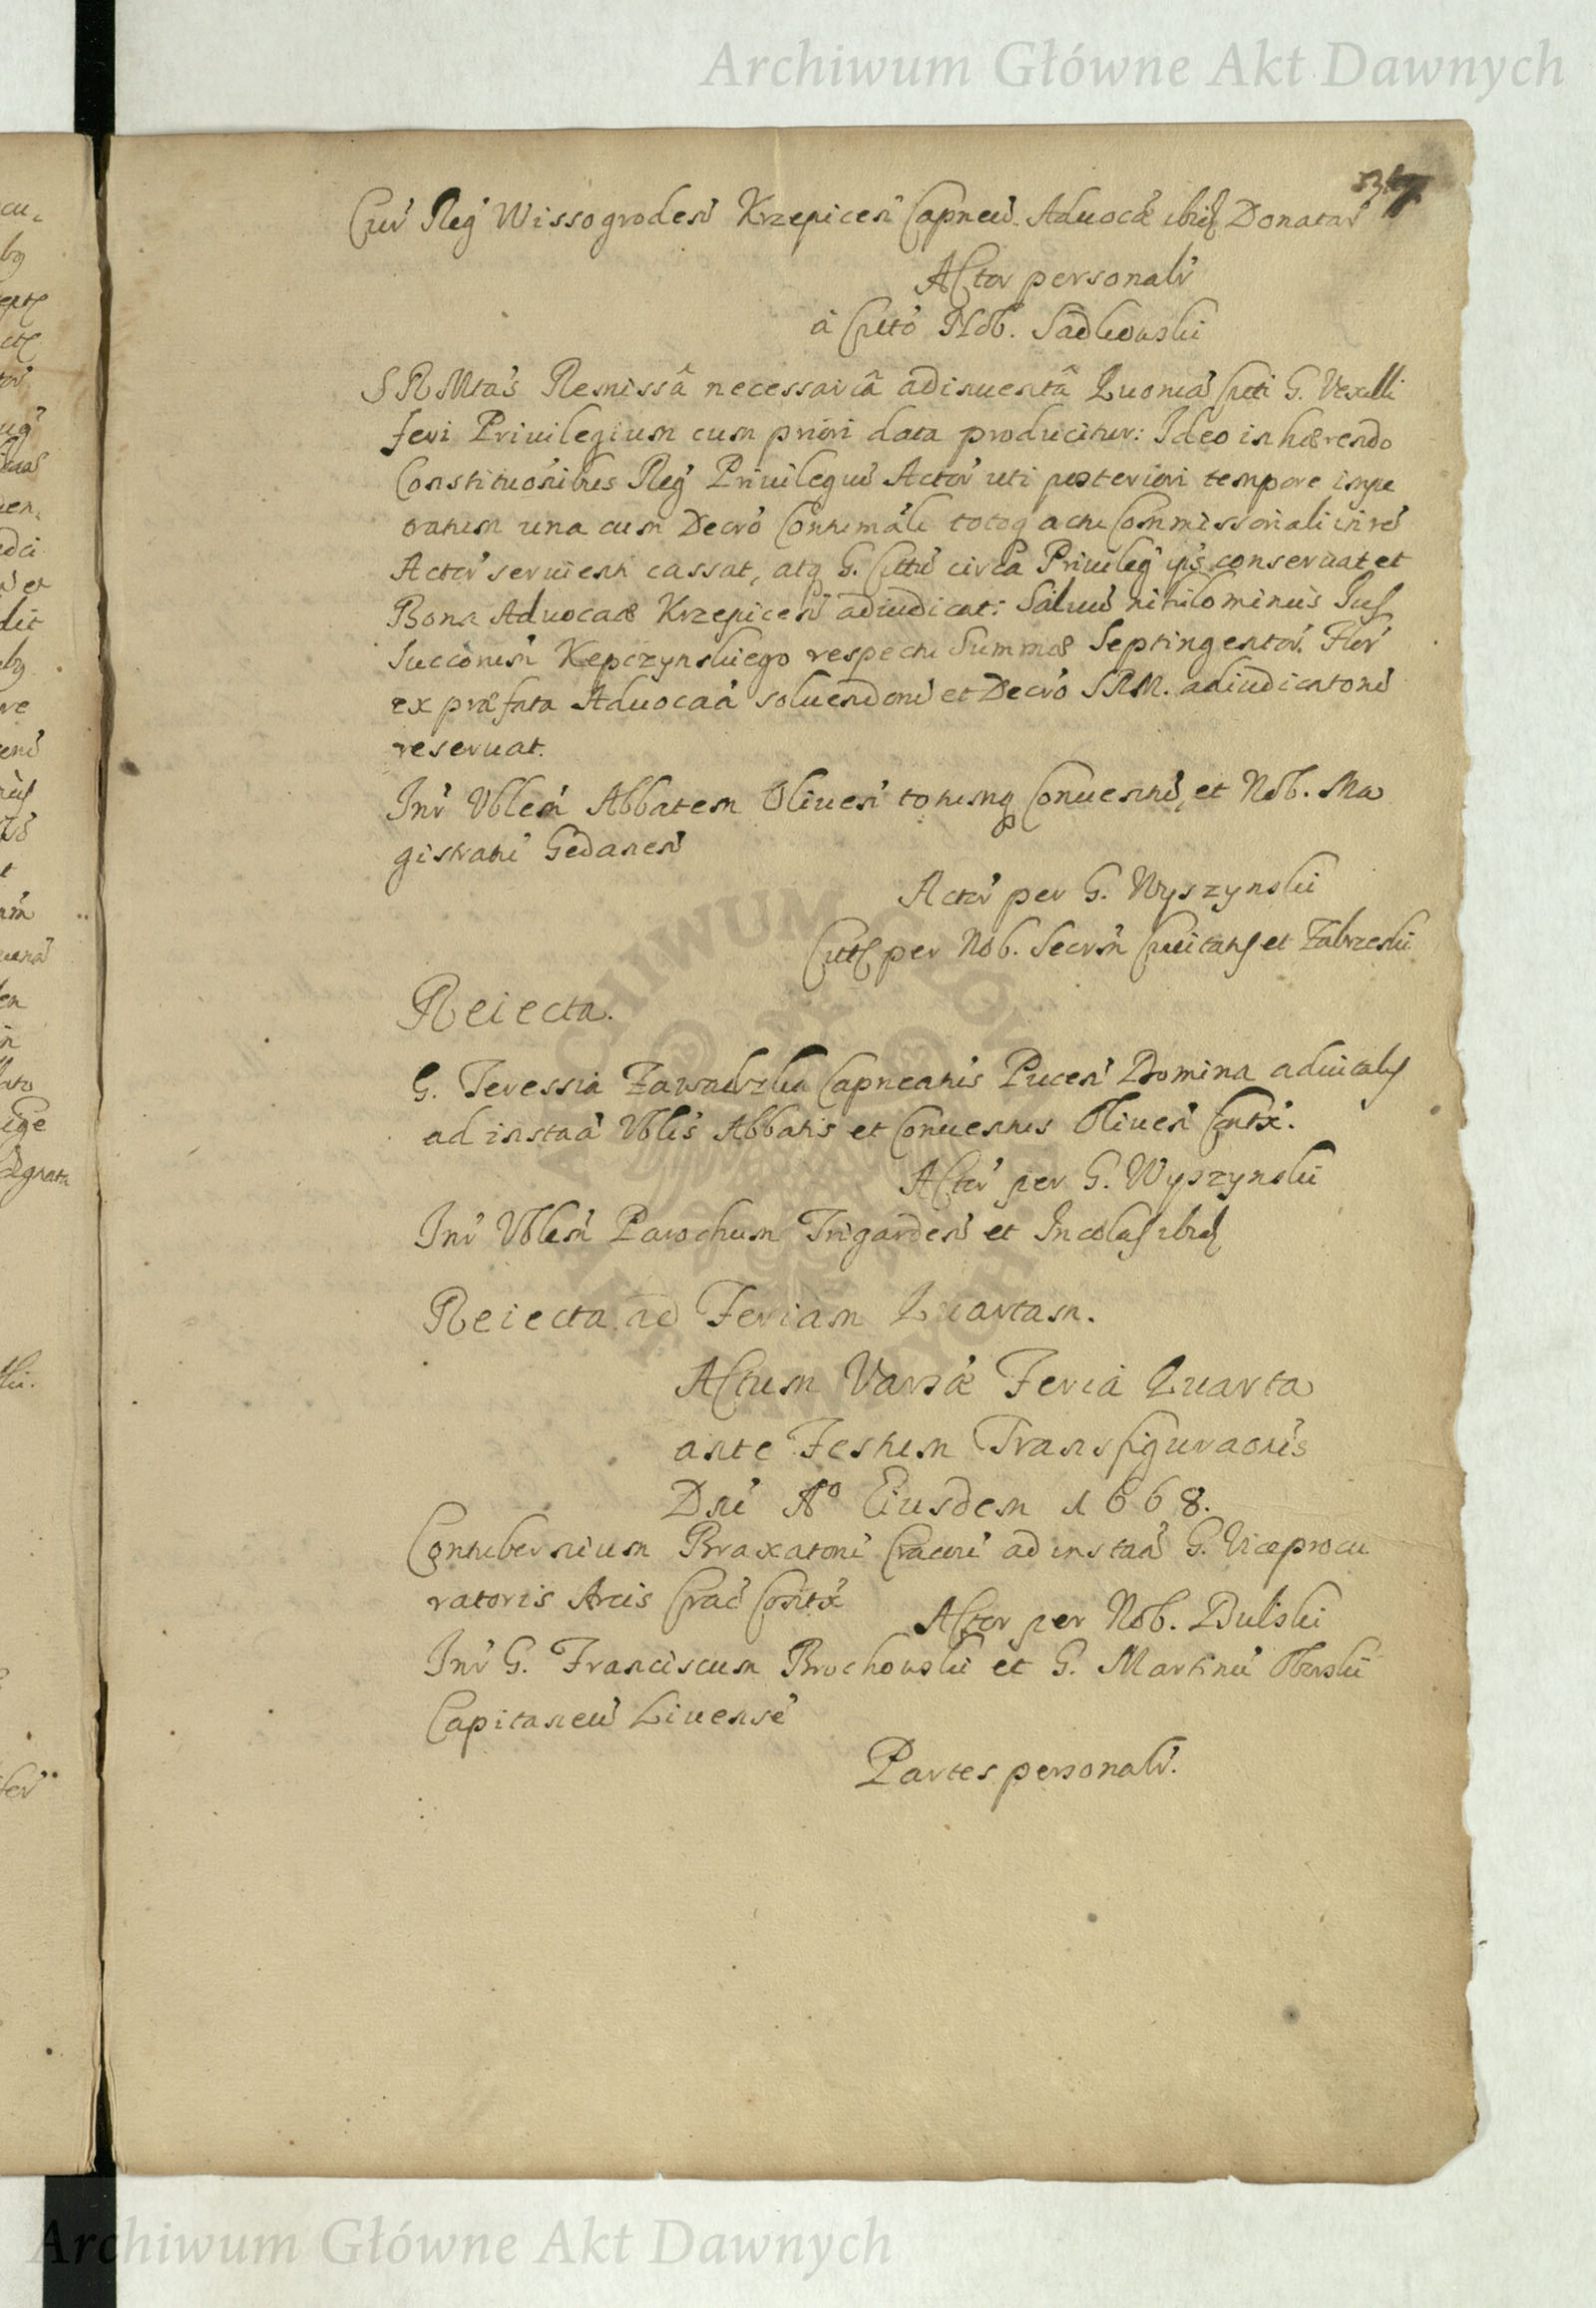 Archiwum Główne Akt Dawnych
Cur Reg Wissogroden Krzepicen Capneu Aduocae ibid Donatar
Actor personalr
a Citto Nob. Sadkowski
S R Mtas Remissa necessaria adinuenta Quonia Citti G. Vexilli
feri Priuilegium cum priori data producitur: Ideo inhærendo
Constituonibus Reg Priuilegiu Actor uti posteriori tempore impe
tratum una cum Decro Contumali totoq actu Commissoriali in re
Actor seruienti cassat, atq G. Cittu circa Priuileg ips conseruat et
Bona Aduocaæ Krzepicen adiudicat: Saluu nihilominus Jus
Succonum Kepczynskiego respectu Summæ Septingentor Flor
ex præfata Aduocaa soluendoru et Decro SRM. adiudicatoru
reseruat.
Intr Vblem Abbatem Oliuen totumq Conuentu, et Nob. Ma
gistratu Gedanen
Actor per G. Wyszynski
Citts per Nob. Secrm Ciuitatis et Zabrzeski
Reiecta.
G. Teressia Zawadzka Capneatus Pucen Domina aduitalis
ad instaa Vblis Abbatis et Conuentus Oliuen Contx.
Actor per G. Wyszynski
Intr Vblem Parochum Trigarden et Incolas ibid
Reiecta ad Feriam Quartam.
Actum Varsæ Feria Quarta
ante Festum Transfiguraonis
Dni Ao Eiusdem 1668.
Contubernium Braxatoru Cracouí ad instaa G. Viceprocu
ratoris Arcis Crac Contx
Actor per Nob. Dulski
Intr G. Franciscum Brochowski et G. Martinu Oborski
Capitaneu Liuense
Partes personalr.
Archiwum Główne Akt Dawnych